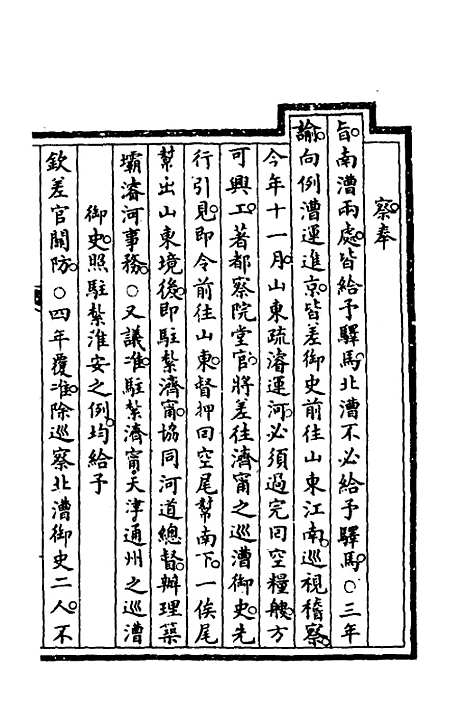 察奉
旨。南漕兩處。皆給予驛馬。北漕不必給予驛馬。○三年
諭。向例漕運進京。皆差御史前往山東江南。巡視稽察。
今年十一月。山東疏濬運河。必須過完回空糧艘。方
可興工。著都察院堂官。將差往濟甯之巡漕御史。先
行引見。即令前往山東。督押回空尾幫南下。一俟尾
幫出山東境後。即駐紮濟甯。協同河道總督。辦理築
壩濬河事務。○又議准。駐紮濟甯。天津。通州之巡漕
御史。照駐紮淮安之例。均給予
欽差官關防。○四年覆准。除巡察北漕御史二人。不